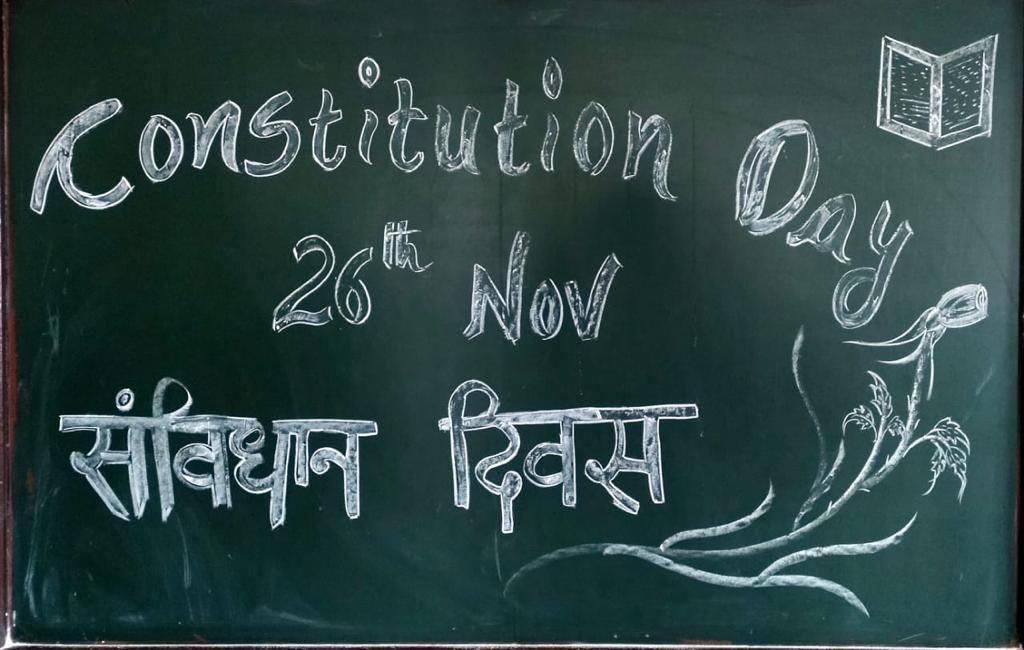 Constitution Day
26th Nov
संविधान दिवस